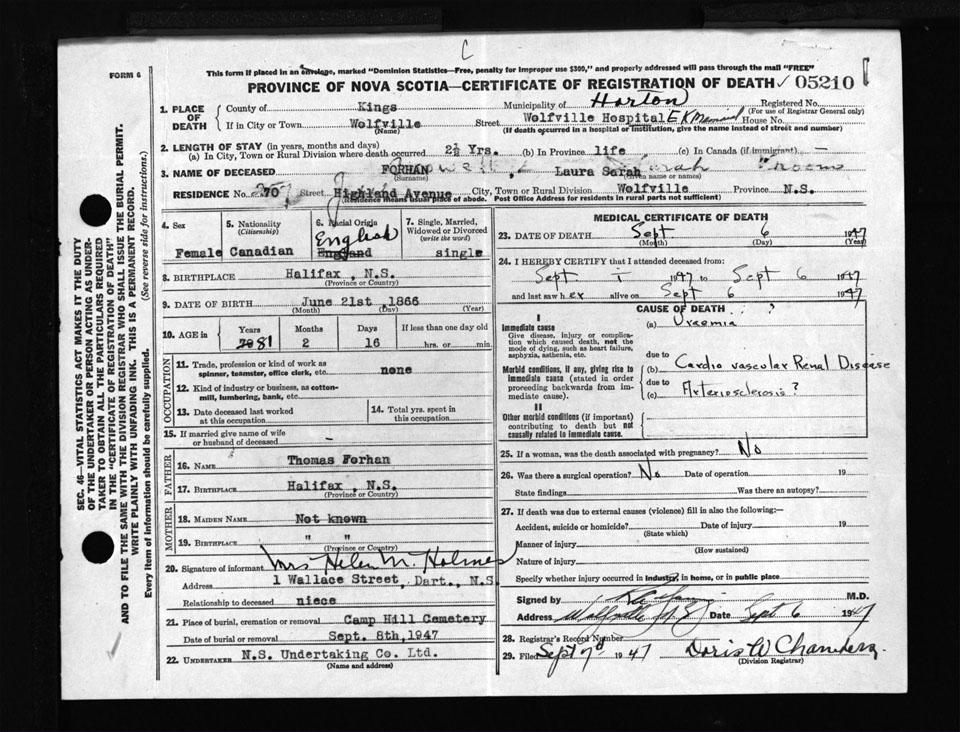 C
FORM 6
This form if placed in an envelope, marked "Dominion Statistics—Free, penalty for improper use $300," and properly addressed will pass through the mail "FREE"
PROVINCE OF NOVA SCOTIA—CERTIFICATE OF REGISTRATION OF DEATH ✓ 05210
1. PLACE OF DEATH
County of Kings Municipality of Horton Registered No.
(For use of Registrar General only)
If in City or Town Wolfville Street Wolfville Hospital E K Memorial House No.
(Name) (If death occurred in a hospital or institution, give the name instead of street and number)
2. LENGTH OF STAY (in years, months and days)
(a) In City, Town or Rural Division where death occurred 2½ Yrs. (b) In Province life (c) In Canada (if immigrant) —
3. NAME OF DECEASED FORHAN Laura Sarah
(Surname) (Given name or names)
RESIDENCE No. 270 Street Highland Avenue City, Town or Rural Division Wolfville Province N.S.
(Residence means usual place of abode. Post Office Address for residents in rural parts not sufficient)
4. Sex
Female
5. Nationality
(Citizenship)
Canadian
6. Racial Origin
English
England
7. Single, Married, Widowed or Divorced
(write the word)
single
8. BIRTHPLACE Halifax, N.S.
(Province or Country)
9. DATE OF BIRTH June 21st, 1866
(Month) (Day) (Year)
10. AGE in
Years Months Days If less than one day old
81 2 16 hrs. or min.
OCCUPATION
11. Trade, profession or kind of work as spinner, teamster, office clerk, etc. none
12. Kind of industry or business, as cotton-mill, lumbering, bank, etc.
13. Date deceased last worked at this occupation
14. Total yrs. spent in this occupation
15. If married give name of wife or husband of deceased -
FATHER
16. NAME Thomas Forhan
17. BIRTHPLACE Halifax, N.S.
(Province or Country)
MOTHER
18. MAIDEN NAME Not known
19. BIRTHPLACE " "
(Province or Country)
20. Signature of informant Mrs Helen M. Holmes
Address 1 Wallace Street, Dart., N.S.
Relationship to deceased niece
21. Place of burial, cremation or removal Camp Hill Cemetery
Date of burial or removal Sept. 8th, 1947
22. UNDERTAKER N.S. Undertaking Co. Ltd.
(Name and address)
MEDICAL CERTIFICATE OF DEATH
23. DATE OF DEATH Sept 6 1947
(Month) (Day) (Year)
24. I HEREBY CERTIFY that I attended deceased from:
Sept. 1 1947 to Sept 6 1947
and last saw her alive on Sept 6 1947
CAUSE OF DEATH
I
Immediate cause
Give disease, injury or complication which caused death, not the mode of dying, such as heart failure, asphyxia, asthenia, etc.
(a) Uraemia
due to
Morbid conditions, if any, giving rise to immediate cause (stated in order proceeding backwards from immediate cause).
(b) Cardio vascular Renal Disease
due to
(c) Arteriosclerosis?
II
Other morbid conditions (if important) contributing to death but not causally related to immediate cause.
25. If a woman, was the death associated with pregnancy? No
26. Was there a surgical operation? No Date of operation 19
State findings Was there an autopsy?
27. If death was due to external causes (violence) fill in also the following:—
Accident, suicide or homicide? Date of injury 19
(State which)
Manner of injury
(How sustained)
Nature of injury
Specify whether injury occurred in industry, in home, or in public place
Signed by M.D.
Address Wolfville Date Sept 6 1947
28. Registrar's Record Number
29. Filed Sept 7th 1947 Doris W Chambers
(Division Registrar)
SEC. 46—VITAL STATISTICS ACT MAKES IT THE DUTY
OF THE UNDERTAKER OR PERSON ACTING AS UNDER-
TAKER TO OBTAIN ALL THE PARTICULARS REQUIRED
IN THE "CERTIFICATE OF REGISTRATION OF DEATH"
AND TO FILE THE SAME WITH THE DIVISION REGISTRAR WHO SHALL ISSUE THE BURIAL PERMIT.
WRITE PLAINLY WITH UNFADING INK. THIS IS A PERMANENT RECORD.
Every item of information should be carefully supplied. (See reverse side for instructions.)